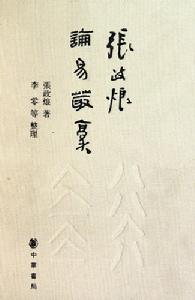 張政烺
論易叢稿
張政烺 著
李零等 整理
中華書局